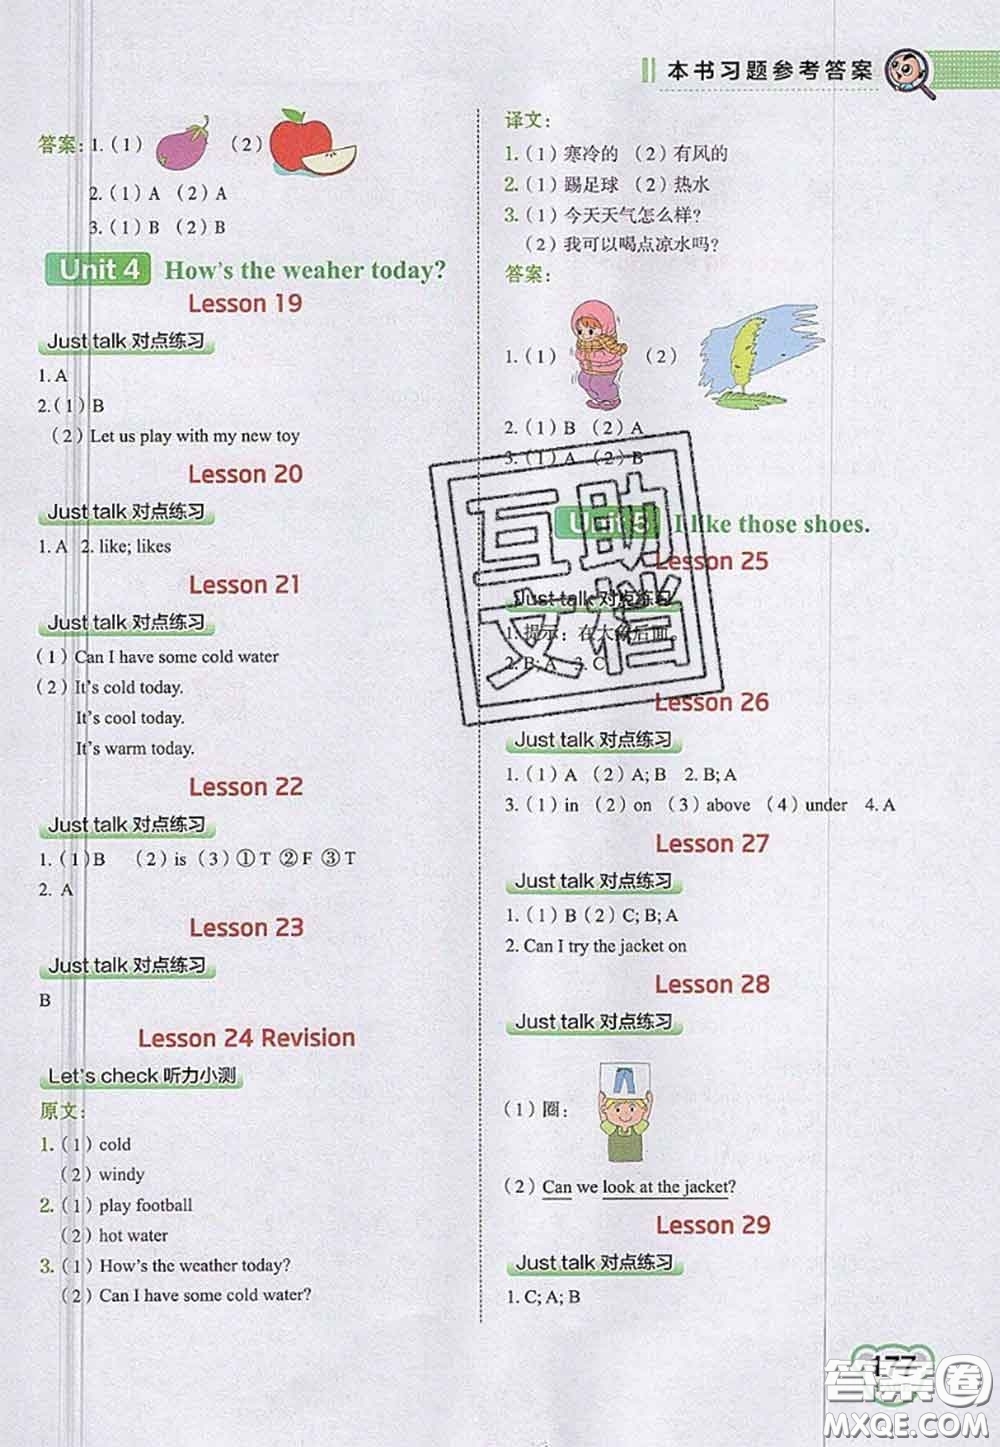 本书习题参考答案
答案：1.（1） （2）
2.（1）A （2）A
3.（1）B （2）B
Unit 4 How's the weaher today?
Lesson 19
Just talk 对点练习
1. A
2.（1）B
（2）Let us play with my new toy
Lesson 20
Just talk 对点练习
1. A 2. like; likes
Lesson 21
Just talk 对点练习
（1）Can I have some cold water
（2）It's cold today.
It's cool today.
It's warm today.
Lesson 22
Just talk 对点练习
1.（1）B （2）is（3）①T ②F ③T
2. A
Lesson 23
Just talk 对点练习
B
Lesson 24 Revision
Let's check 听力小测
原文：
1.（1）cold
（2）windy
2.（1）play football
（2）hot water
3.（1）How's the weather today?
（2）Can I have some cold water?
译文：
1.（1）寒冷的 （2）有风的
2.（1）踢足球 （2）热水
3.（1）今天天气怎么样？
（2）我可以喝点凉水吗？
答案：
1.（1） （2）
2.（1）B （2）A
3.（1）A （2）B
Unit 5 I like those shoes.
Lesson 25
Just talk 对点练习
1. 提示：在大象后面。
2. B; A 3. C
Lesson 26
Just talk 对点练习
1.（1）A （2）A; B 2. B; A
3.（1）in （2）on （3）above （4）under 4. A
Lesson 27
Just talk 对点练习
1.（1）B（2）C; B; A
2. Can I try the jacket on
Lesson 28
Just talk 对点练习
（1）圈：
（2）Can we look at the jacket?
Lesson 29
Just talk 对点练习
1. C; A; B
177
互助
文档
答案圈
MXQE.COM